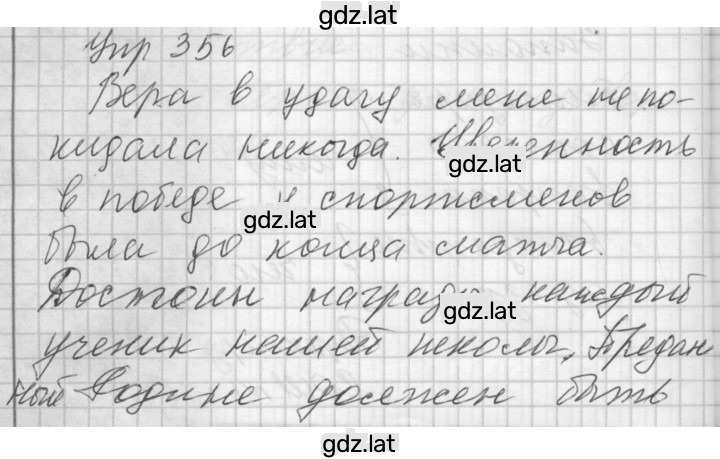 gdz.lat
Упр 356
Вера в удачу меня не по-
кидала никогда. Уверенность
gdz.lat
в победе у спортсменов
gdz.lat
была до конца матча.
Достоин награды каждый
gdz.lat
ученик нашей школы, Предан
ный Родине должен быть
gdz.lat